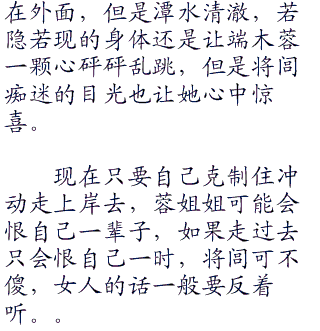 在外面，但是潭水清澈，若
隐若现的身体还是让端木蓉
一颗心砰砰乱跳，但是将闾
痴迷的目光也让她心中惊
喜。
现在只要自己克制住冲
动走上岸去，蓉姐姐可能会
恨自己一辈子，如果走过去
只会恨自己一时，将闾可不
傻，女人的话一般要反着
听。。